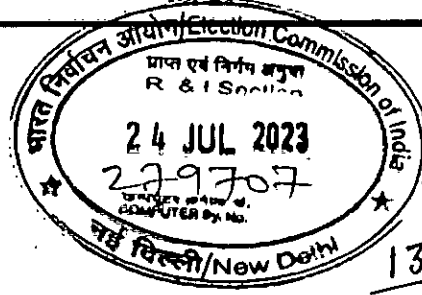 भारत निर्वाचन आयोग/Election Commission of India
प्राप्त एवं निर्गम अनुभाग
R & I Section
24 JUL 2023
279707
COMPUTER Dy. No.
नई दिल्ली/New Delhi
13